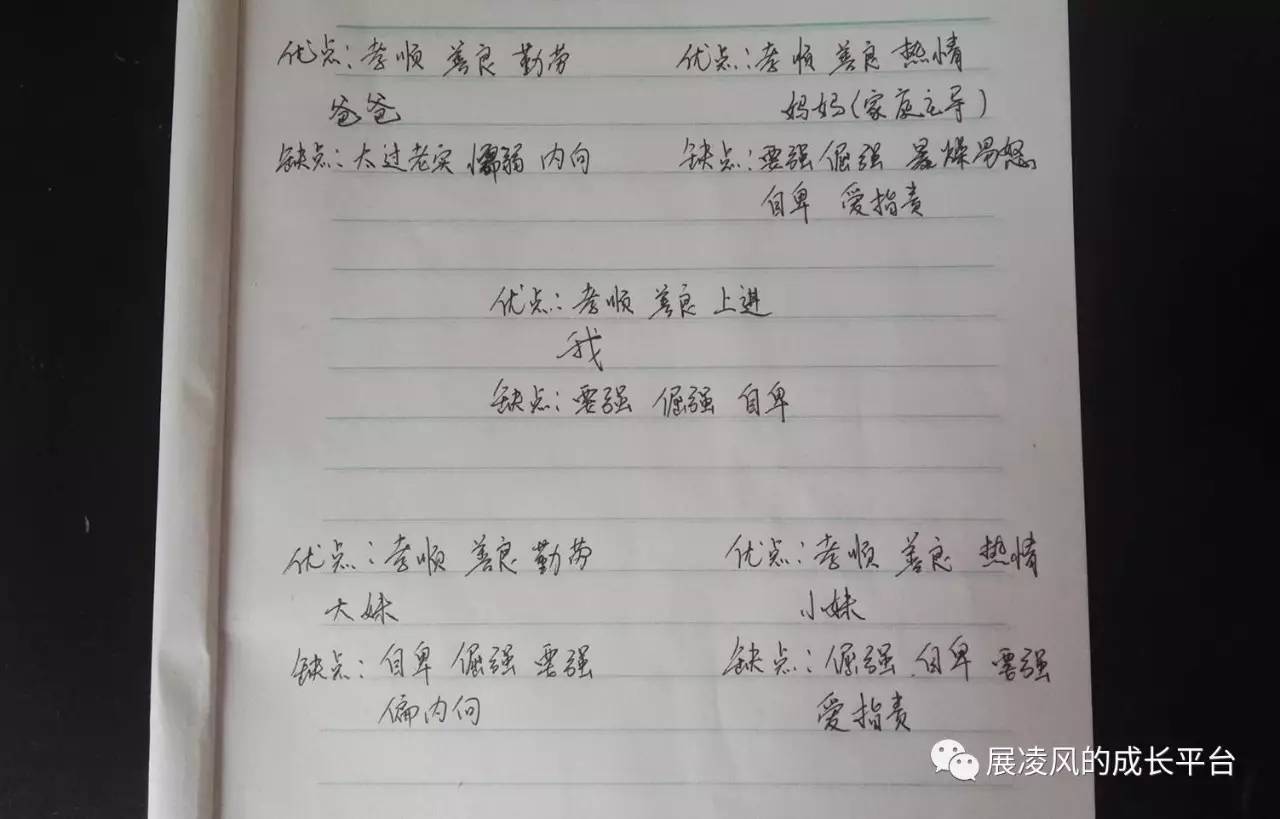 优点：孝顺 善良 勤劳
爸爸
缺点：太过老实 懦弱 内向
优点：孝顺 善良 热情
妈妈（家庭主导）
缺点：要强 倔强 暴燥易怒
自卑 爱指责
优点：孝顺 善良 上进
我
缺点：要强 倔强 自卑
优点：孝顺 善良 勤劳
大妹
缺点：自卑 倔强 要强
偏内向
优点：孝顺 善良 热情
小妹
缺点：倔强 自卑 要强
爱指责
展凌风的成长平台